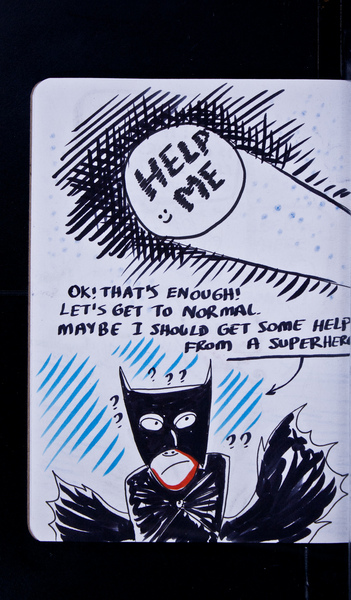 HELP
ME
OK! THAT'S ENOUGH!
LET'S GET TO NORMAL.
MAYBE I SHOULD GET SOME HELP
FROM A SUPERHER
? ? ?
?
?
? ?